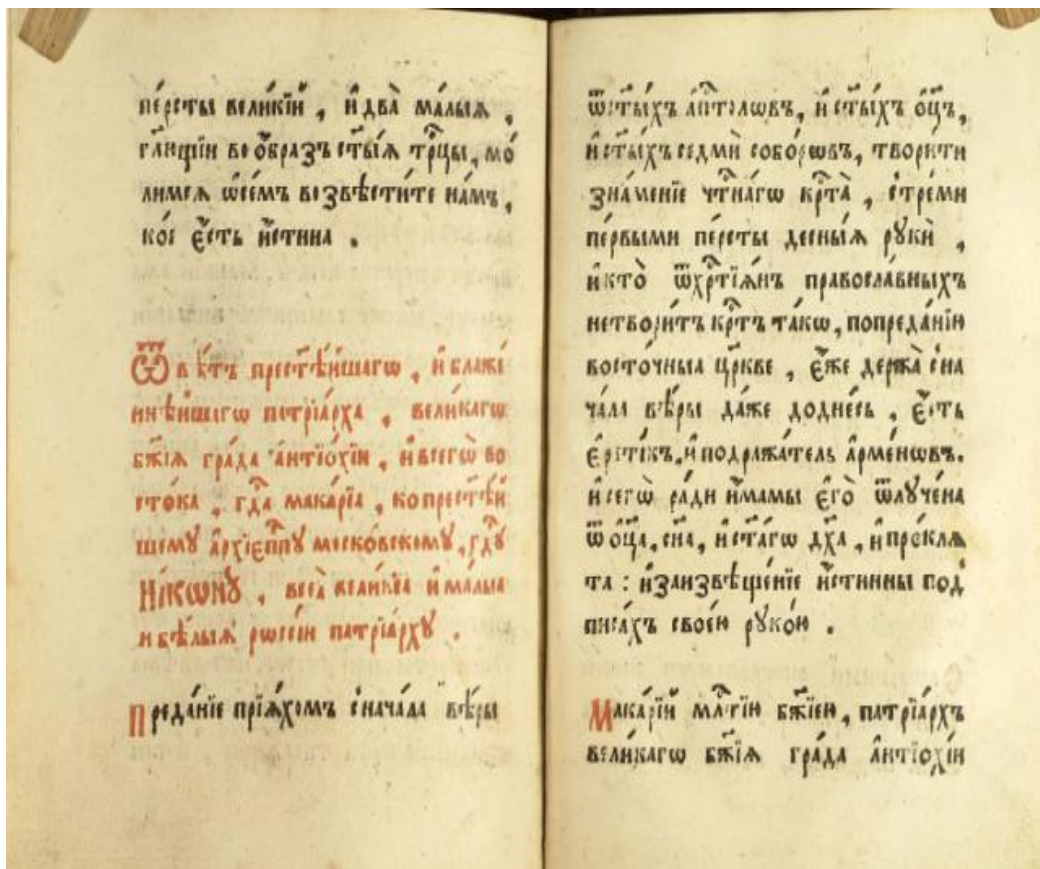 пе́рсты вели́кїй , и҆ два̀ ма́лыѧ ,
гл҃ющїи во ѻ҆́бразъ ст҃ы́ѧ трⷪ҇цы, мо́
лимсѧ ѡ҆се́мъ возвѣсти́те на́мъ ,
ко́е є҆́сть и҆́стина .
Ѿвѣ́тъ прест҃ѣ́йшагѡ , и҆ блаже́
ннѣ́йшагѡ патрїа́рха , вели́кагѡ
бж҃їѧ гра́да а҆нтїо́хїи , и҆ всегѡ̀ во
сто́ка , гдⷭ҇а мака́рїа , ко прест҃ѣ́й
шему а҆рхїєпⷭ҇пꙋ моско́вскомꙋ , гдⷭ҇ꙋ
Ні́кѡнꙋ , всеѧ̀ вели́кїа и҆ ма́лыа
и҆ бѣ́лыѧ рѡссі́и патрїа́рхꙋ .
Преда́нїе прїѧ́хомъ с̾нача́ла вѣ́ры
ѿст҃ы́хъ а҆пⷭ҇толѡвъ , и҆ ст҃ы́хъ ѻ҆ц҃ъ ,
и҆ ст҃ы́хъ седмѝ собо́рѡвъ , твори́ти
зна́менїе чⷭ҇тна́гѡ крⷭ҇та̀ , с̾треми
пе́рвыми пе́рсты десны́ѧ рꙋкѝ ,
и҆ кто̀ ѿхрⷭ҇тїѧ́нъ правосла́вныхъ
нетвори́тъ крⷭ҇тъ та́кѡ , попреда́нїю
восто́чныа цр҃кве , є҆́же держа̀ с̾на
ча́ла вѣ́ры да́же додне́сь , є҆́сть
є҆рети́къ . и҆ подража́тель а҆рме́нѡвъ .
и҆ сегѡ̀ ра́ди и҆́мамы є҆го̀ ѿлꙋче́на
ѿ ѻ҆ц҃а , сн҃а , и҆ ст҃а́гѡ дх҃а , и҆ про́клѧ
та : и҆ заизвѣще́нїе и҆́стинны под
писа́хъ свое́ю рꙋко́ю .
Мака́рїй млⷭ҇тїю бж҃їею , патрїа́рхъ
вели́кагѡ бж҃їѧ гра́да а҆нтїохі́и